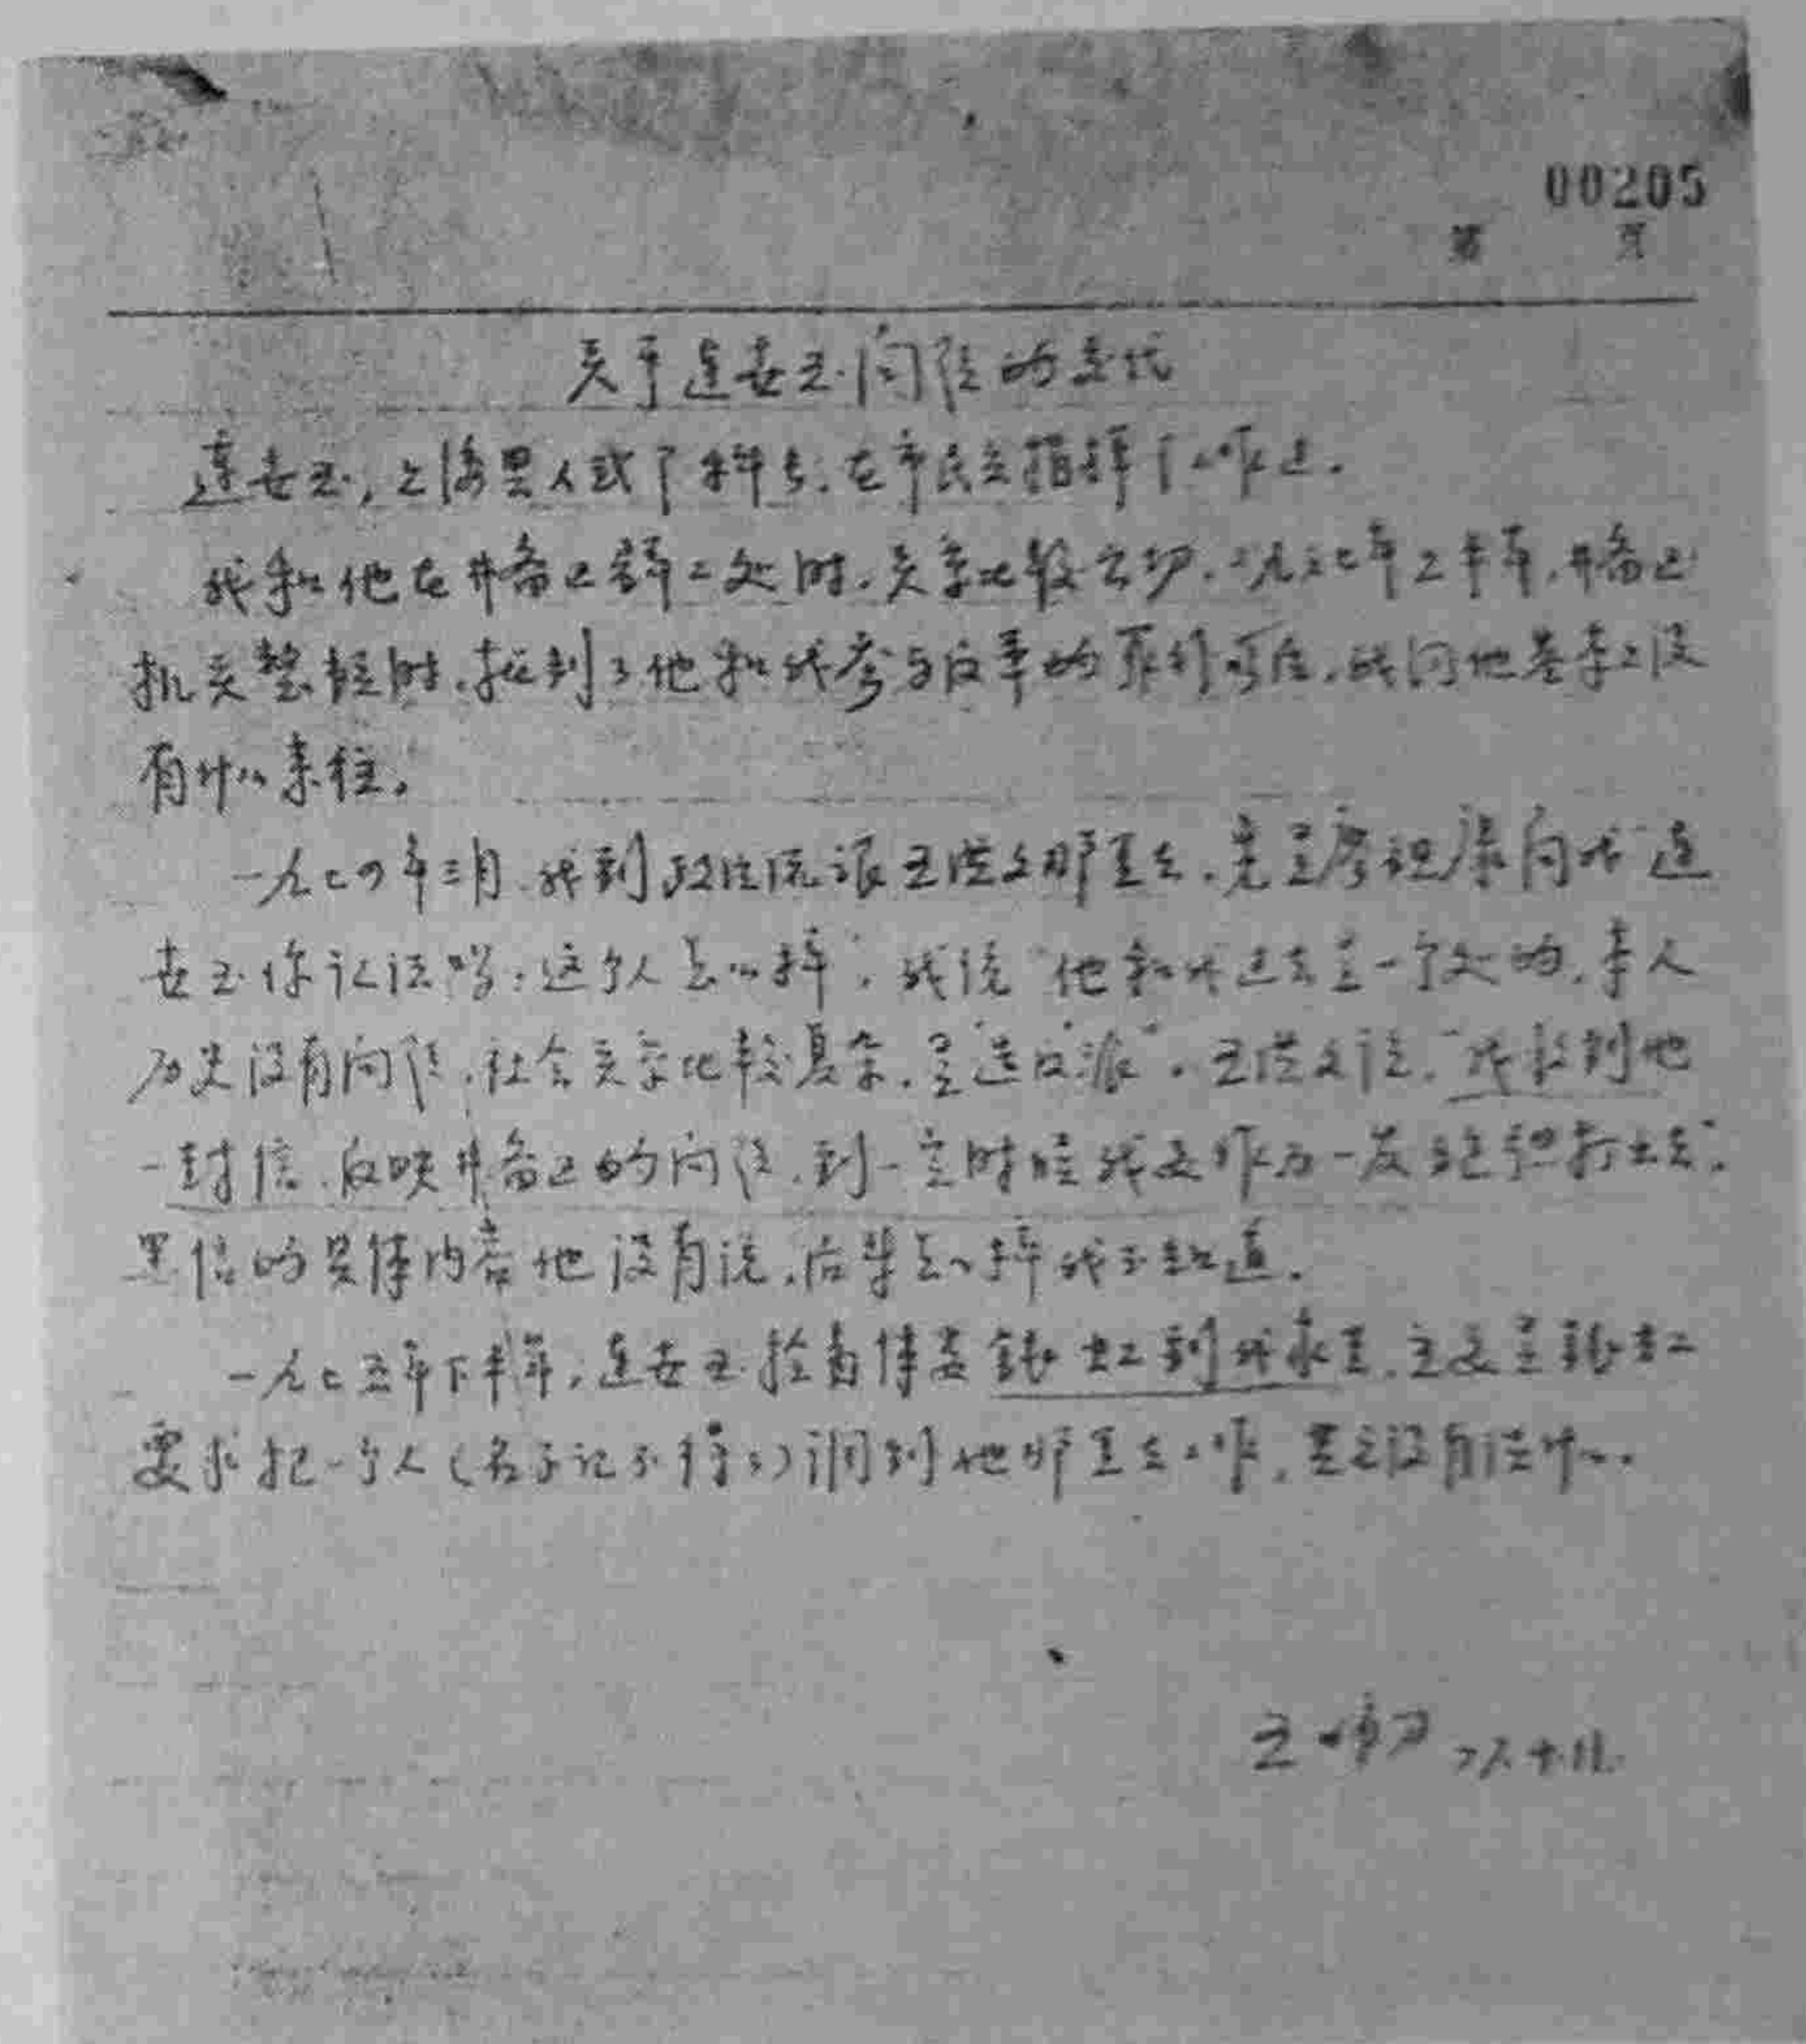 00205
第 页
关于连安玉问题的交代
连安玉,上海县人武部科长.在市民兵指挥部工作过.
我和他在井备区第二处时.关系比较密切.一九六七年上半年.井备区
机关整顿时.批判了他和我参与反革的罪行后.我同他基本上没
有什么来往.
一九七四年三月.我到政法院派王洪文那里去.先是廖祖康问我"连
安玉你认识吗.这个人怎么样".我说"他和我过去是一个处的.本人
历史没有问题.社会关系比较复杂.是"造反派".王洪文说."我收到他
一封信.反映井备区的问题.到一定时候我要作为一发炮弹打出去".
黑信的具体内容他没有说.后来怎么样我不知道.
一九七五年下半年.连安玉 到我家里.主要是
要求把一个人(名字记不得了)调到他那里去工作.其它没有谈什么.